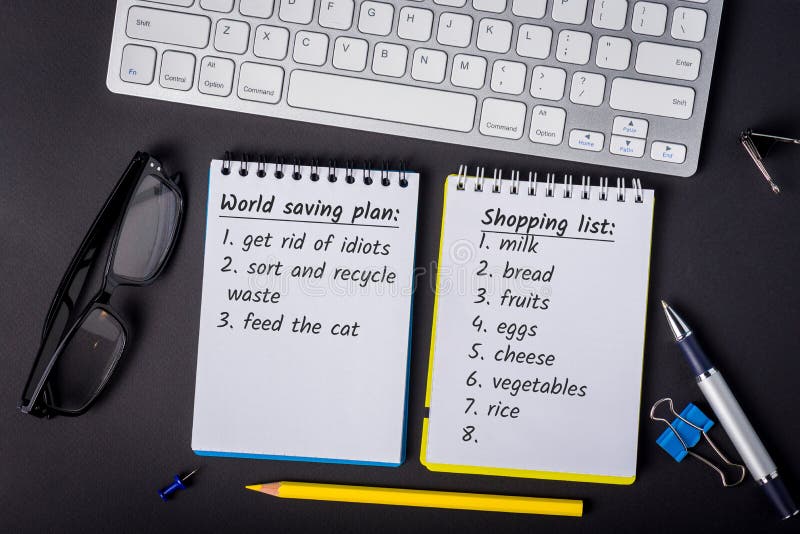 Q W E R T Y U I O P
A S D F G H J K L
Shift Z X C V B N M Shift
Fn Control Alt Option Command Command Alt Option
Home PaUp PaDn End
World saving plan:
1. get rid of idiots
2. sort and recycle
waste
3. feed the cat
Shopping list:
1. milk
2. bread
3. fruits
4. eggs
5. cheese
6. vegetables
7. rice
8.